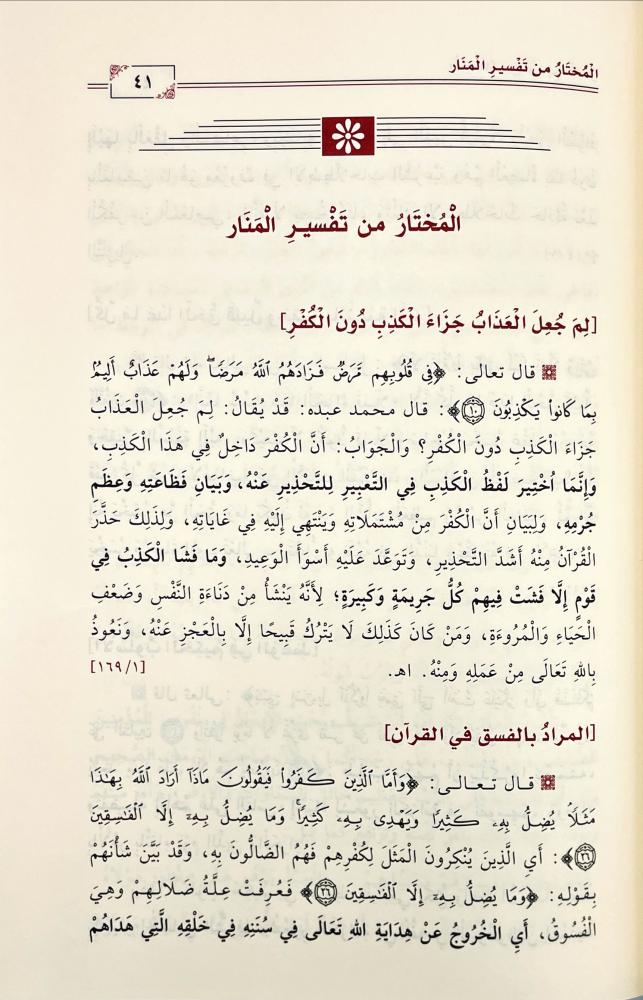 الْمُخْتَارُ مِن تَفْسيرِ الْمَنَار
٤١
الْمُخْتَارُ من تَفْسيرِ الْمَنَار
[لِمَ جُعِلَ الْعَذَابُ جَزَاءَ الْكَذِبِ دُونَ الْكُفْرِ]
قال تعالى: ﴿فِي قُلُوبِهِم مَّرَضٌ فَزَادَهُمُ اللَّهُ مَرَضًاۖ وَلَهُمْ عَذَابٌ أَلِيمٌۢ
بِمَا كَانُوا۟ يَكْذِبُونَ ١٠﴾: قال محمد عبده: قَدْ يُقَالُ: لِمَ جُعِلَ الْعَذَابُ
جَزَاءَ الْكَذِبِ دُونَ الْكُفْرِ؟ وَالْجَوَابُ: أَنَّ الْكُفْرَ دَاخِلٌ فِي هَذَا الْكَذِبِ،
وَإِنَّمَا اخْتِيرَ لَفْظُ الْكَذِبِ فِي التَّعْبِيرِ لِلتَّحْذِيرِ عَنْهُ، وَبَيَانِ فَظَاعَتِهِ وَعِظَمِ
جُرْمِهِ، وَلِبَيَانِ أَنَّ الْكُفْرَ مِنْ مُشْتَمَلَاتِهِ وَيَنْتَهِي إِلَيْهِ فِي غَايَاتِهِ، وَلِذَلِكَ حَذَّرَ
الْقُرْآنُ مِنْهُ أَشَدَّ التَّحْذِيرِ، وَتَوَعَّدَ عَلَيْهِ أَسْوَأَ الْوَعِيدِ، وَمَا فَشَا الْكَذِبُ فِي
قَوْمٍ إِلَّا فَشَتْ فِيهِمْ كُلُّ جَرِيمَةٍ وَكَبِيرَةٍ؛ لِأَنَّهُ يَنْشَأُ مِنْ دَنَاءَةِ النَّفْسِ وَضَعْفِ
الْحَيَاءِ وَالْمُرُوءَةِ، وَمَنْ كَانَ كَذَلِكَ لَا يَتْرُكُ قَبِيحًا إِلَّا بِالْعَجْزِ عَنْهُ، وَنَعُوذُ
بِاللهِ تَعَالَى مِنْ عَمَلِهِ وَمِنْهُ. اهـ. [١٦٩/١]
[المرادُ بالفسق في القرآن]
قال تعالى: ﴿وَأَمَّا ٱلَّذِينَ كَفَرُوا۟ فَيَقُولُونَ مَاذَآ أَرَادَ ٱللَّهُ بِهَٰذَا
مَثَلًاۘ يُضِلُّ بِهِۦ كَثِيرًا وَيَهْدِى بِهِۦ كَثِيرًاۚ وَمَا يُضِلُّ بِهِۦٓ إِلَّا ٱلْفَٰسِقِينَ
٢٦﴾: أَيِ الَّذِينَ يُنْكِرُونَ الْمَثَلَ لِكُفْرِهِمْ فَهُمُ الضَّالُّونَ بِهِ، وَقَدْ بَيَّنَ شَأْنَهُمْ
بِقَوْلِهِ: ﴿وَمَا يُضِلُّ بِهِۦٓ إِلَّا ٱلْفَٰسِقِينَ ٢٦﴾ فَعُرِفَتْ عِلَّةُ ضَلَالِهِمْ وَهِيَ
الْفُسُوقُ، أَيِ الْخُرُوجُ عَنْ هِدَايَةِ اللهِ تَعَالَى فِي سُنَنِهِ فِي خَلْقِهِ الَّتِي هَدَاهُمْ